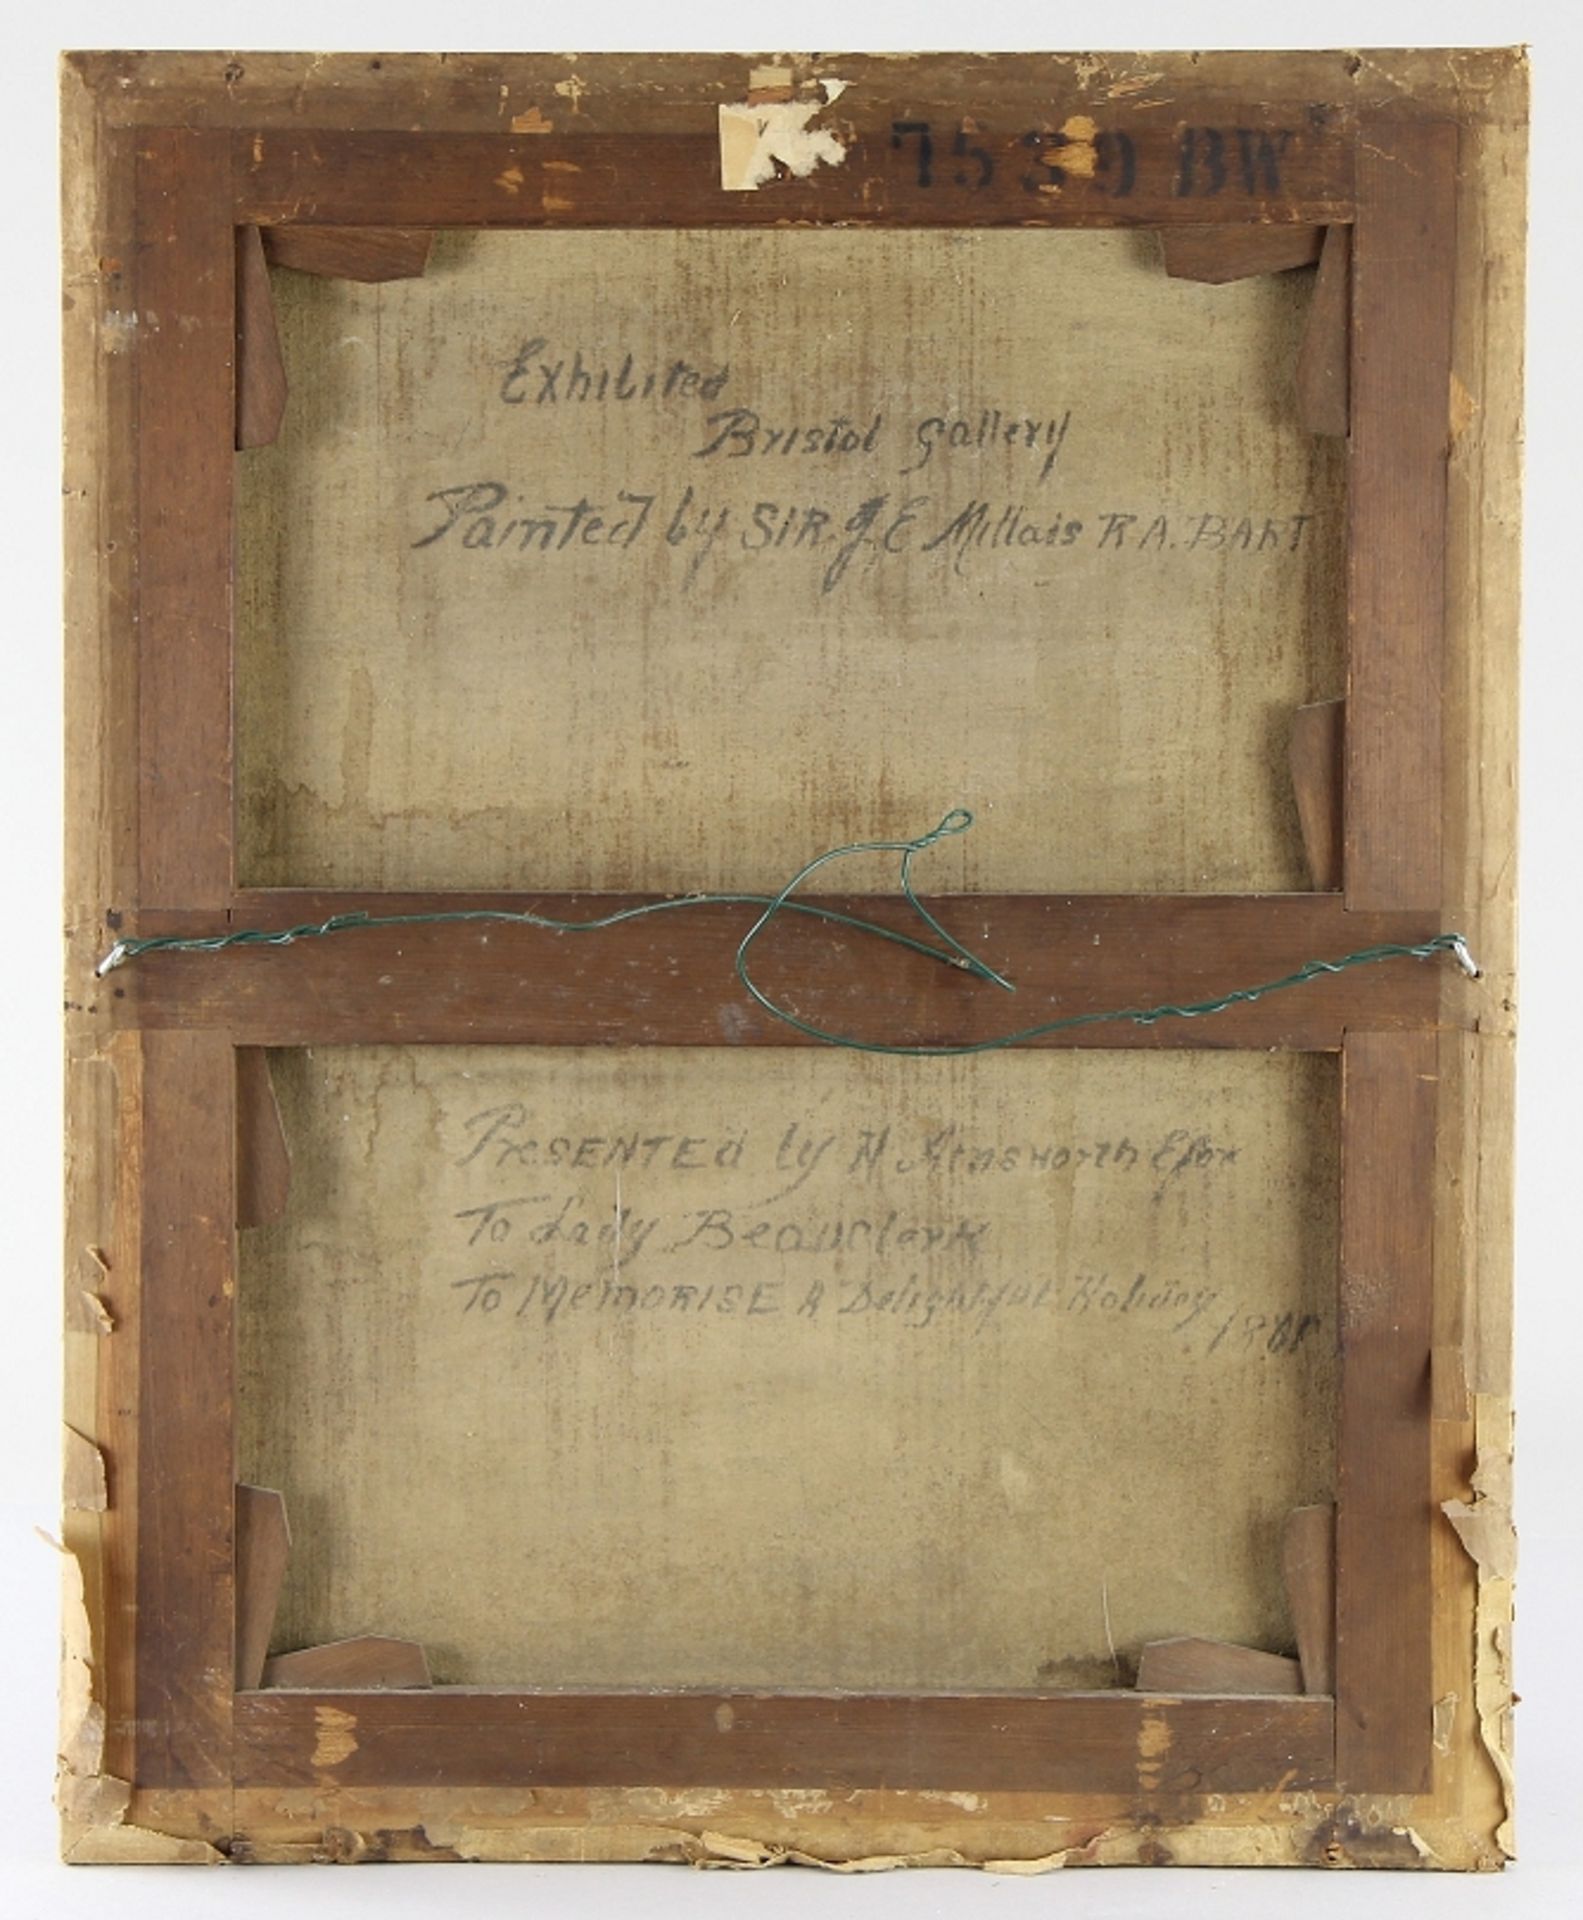 7539 BW
Exhibited
Bristol gallery
Painted by SIR. J. E Millais R A. BART
PreSENTEd by H Ainsworth
To Lady BeauClerk
To MemORISE A Delightful Holiday